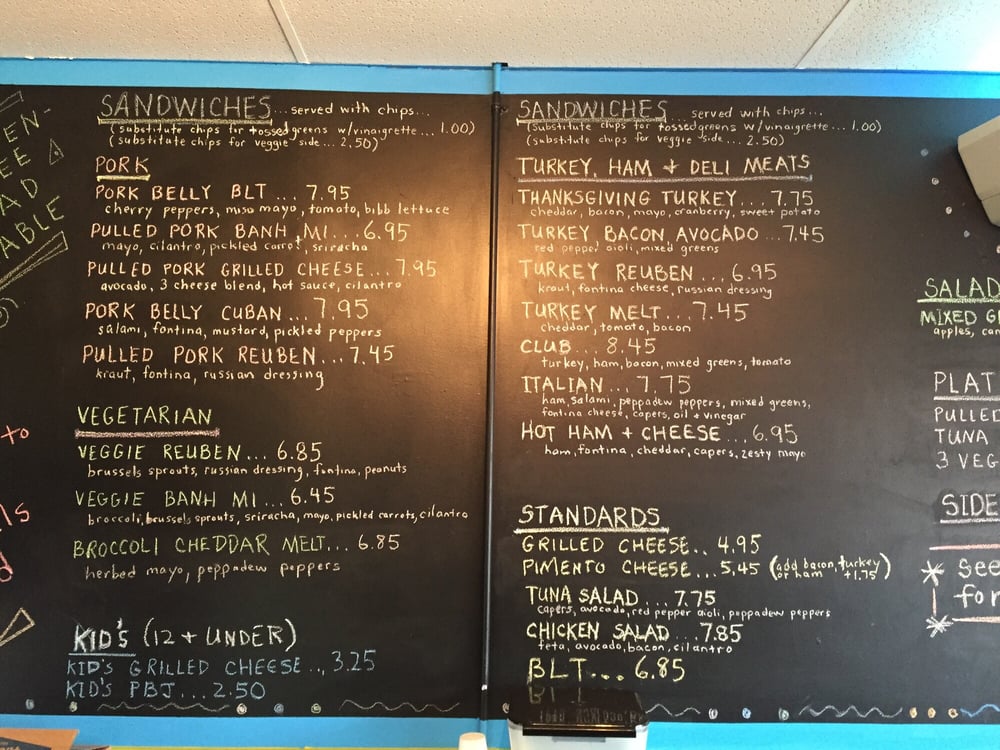 EN-
EE
AD
ABLE
to
ls
d
SANDWICHES...served with chips...
(substitute chips for tossed greens w/vinaigrette... 1.00)
(substitute chips for veggie side... 2.50)
PORK
PORK BELLY BLT ... 7.95
cherry peppers, miso mayo, tomato, bibb lettuce
PULLED PORK BANH MI...6.95
mayo, cilantro, pickled carrot, sriracha
PULLED PORK GRILLED CHEESE...7.95
avocado, 3 cheese blend, hot sauce, cilantro
PORK BELLY CUBAN ... 7.95
salami, fontina, mustard, pickled peppers
PULLED PORK REUBEN...7.45
kraut, fontina, russian dressing
VEGETARIAN
VEGGIE REUBEN... 6.85
brussels sprouts, russian dressing, fontina, peanuts
VEGGIE BANH MI ... 6.45
broccoli, brussels sprouts, sriracha, mayo, pickled carrots, cilantro
BROCCOLI CHEDDAR MELT... 6.85
herbed mayo, peppadew peppers
KID'S (12 + UNDER)
KID'S GRILLED CHEESE... 3.25
KID'S PBJ...2.50
SANDWICHES... served with chips...
(substitute chips for tossed greens w/vinaigrette... 1.00)
(substitute chips for veggie side... 2.50)
TURKEY, HAM + DELI MEATS
THANKSGIVING TURKEY...7.75
cheddar, bacon, mayo, cranberry, sweet potato
TURKEY BACON AVOCADO ...7.45
red pepper aioli, mixed greens
TURKEY REUBEN... 6.95
kraut, fontina cheese, russian dressing
TURKEY MELT ...7.45
cheddar, tomato, bacon
CLUB... 8.45
turkey, ham, bacon, mixed greens, tomato
ITALIAN ... 7.75
ham, salami, peppadew peppers, mixed greens,
fontina cheese, capers, oil + vinegar
HOT HAM + CHEESE ...6.95
ham, fontina, cheddar, capers, zesty mayo
STANDARDS
GRILLED CHEESE.. 4.95
PIMENTO CHEESE...5.45 (add bacon, turkey
or ham +1.75)
TUNA SALAD ...7.75
capers, avocado, red pepper aioli, peppadew peppers
CHICKEN SALAD ...7.85
feta, avocado, bacon, cilantro
BLT... 6.85
SALAD
MIXED G
apples, can
PLAT
PULLED
TUNA
3 VEG
SIDE
* see
for
*